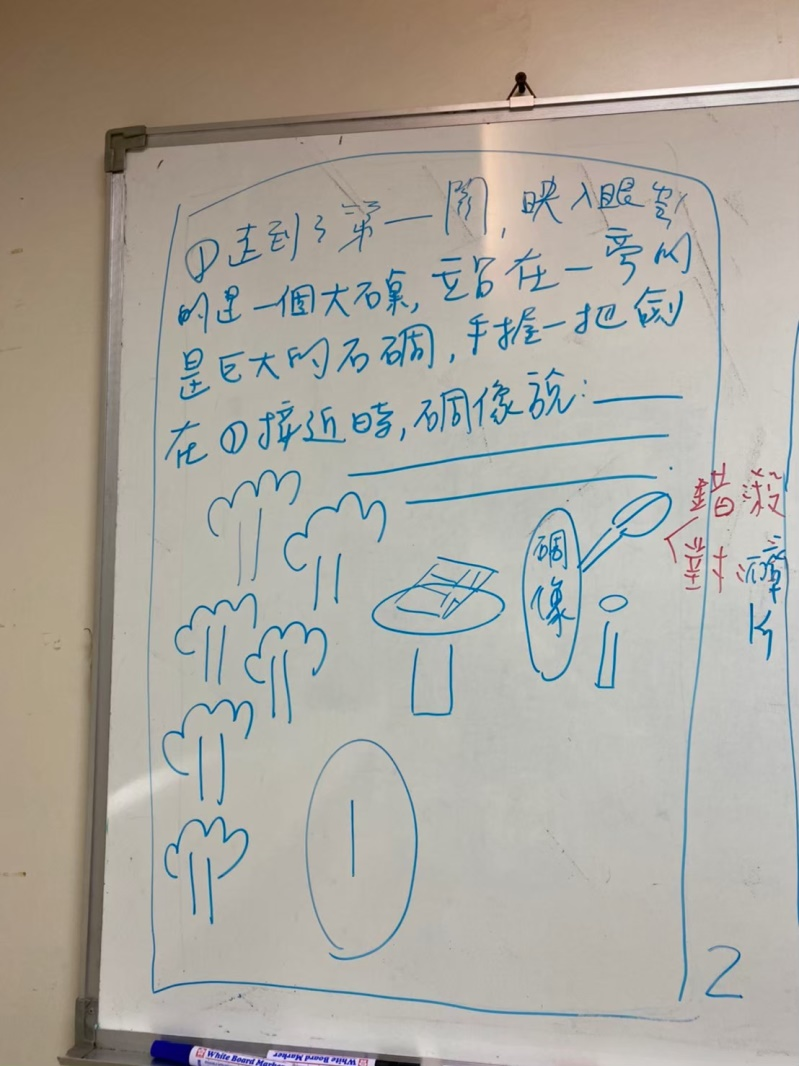 ①走到了第一關,映入眼前
的是一個大石桌,立占在一旁的
是巨大的石碉,手握一把劍
在①接近時,碉像說:
碉
像
錯殺
對
1
2
White Board Marker
White Board Marker